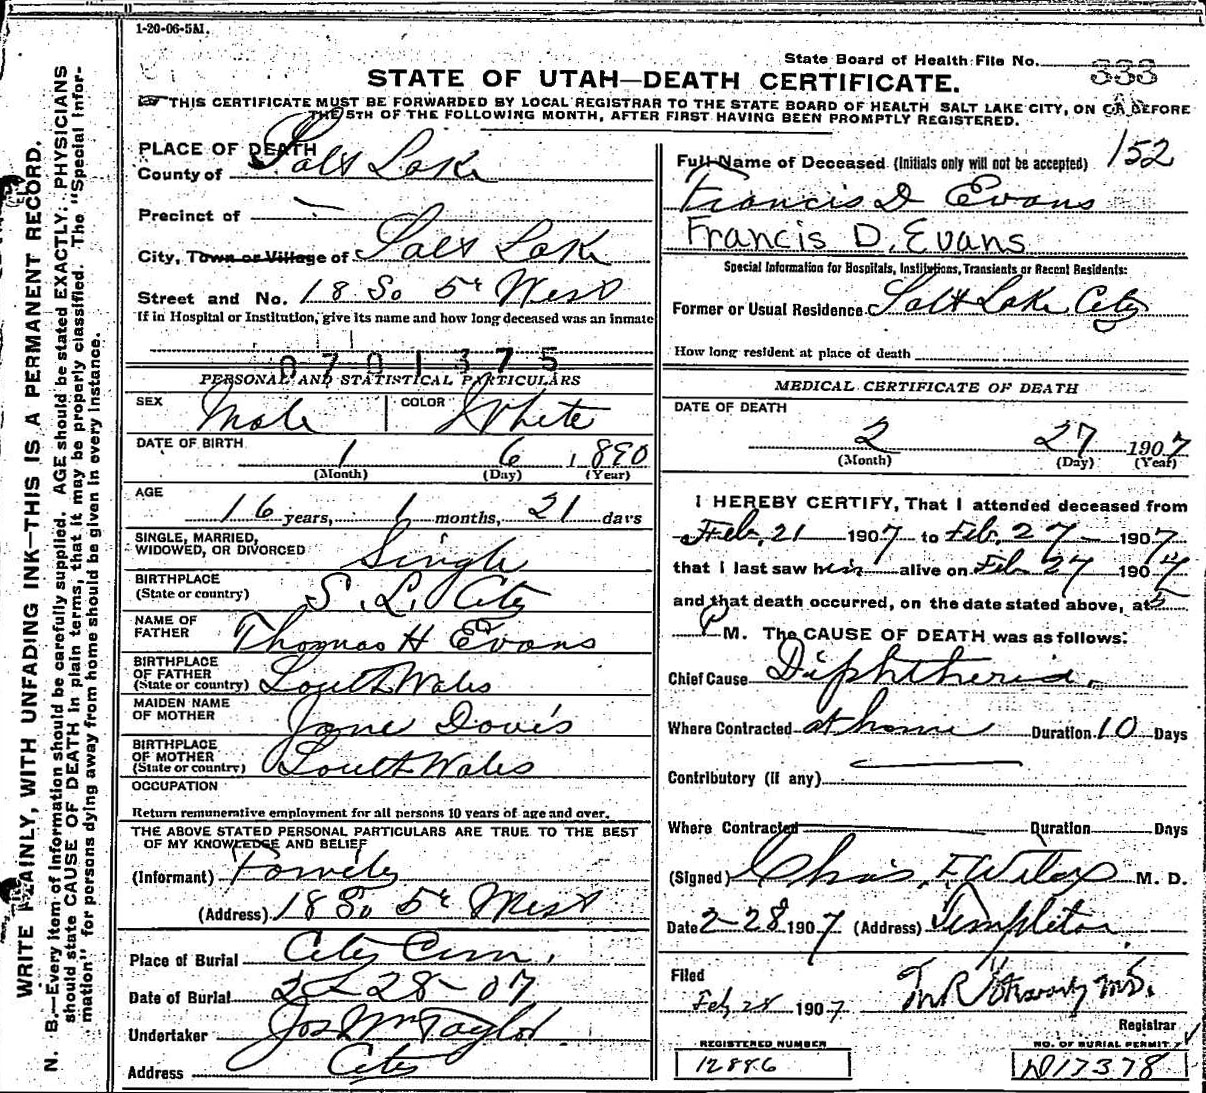 1-20-06-5M.
State Board of Health File No. 333
STATE OF UTAH—DEATH CERTIFICATE.
THIS CERTIFICATE MUST BE FORWARDED BY LOCAL REGISTRAR TO THE STATE BOARD OF HEALTH SALT LAKE CITY, ON OR BEFORE
THE 5TH OF THE FOLLOWING MONTH, AFTER FIRST HAVING BEEN PROMPTLY REGISTERED.
WRITE PLAINLY, WITH UNFADING INK—THIS IS A PERMANENT RECORD.
N. B.—Every item of information should be carefully supplied. AGE should be stated EXACTLY. PHYSICIANS
should state CAUSE OF DEATH in plain terms, that it may be properly classified. The "Special Infor-
mation" for persons dying away from home should be given in every instance.
PLACE OF DEATH
County of Salt Lake
Precinct of —
City, Town or Village of Salt Lake
Street and No. 18 So 5th West
If in Hospital or Institution, give its name and how long deceased was an inmate
0701375
PERSONAL AND STATISTICAL PARTICULARS
SEX Male COLOR White
DATE OF BIRTH 1 6 1890
(Month) (Day) (Year)
AGE
16 years, 1 months, 21 days
SINGLE, MARRIED,
WIDOWED, OR DIVORCED Single
BIRTHPLACE
(State or country) S. L. City
NAME OF
FATHER Thomas H Evans
BIRTHPLACE
OF FATHER
(State or country) South Wales
MAIDEN NAME
OF MOTHER Jane Davis
BIRTHPLACE
OF MOTHER
(State or country) South Wales
OCCUPATION
Return remunerative employment for all persons 10 years of age and over.
THE ABOVE STATED PERSONAL PARTICULARS ARE TRUE TO THE BEST
OF MY KNOWLEDGE AND BELIEF
(Informant) Family
(Address) 18 So 5th West
Place of Burial City Cem.
Date of Burial 2-28-07
Undertaker Jos Wm Taylor
Address City
Full Name of Deceased (Initials only will not be accepted) 152
Francis D Evans
Francis D. Evans
Special Information for Hospitals, Institutions, Transients or Recent Residents:
Former or Usual Residence Salt Lake City
How long resident at place of death
MEDICAL CERTIFICATE OF DEATH
DATE OF DEATH
2 27 1907
(Month) (Day) (Year)
I HEREBY CERTIFY, That I attended deceased from
Feb. 21 1907 to Feb. 27 1907
that I last saw him alive on Feb 27 1907
and that death occurred, on the date stated above, at 5
P M. The CAUSE OF DEATH was as follows:
Chief Cause Diphtheria.
Where Contracted at home Duration 10 Days
Contributory (if any) —
Where Contracted Duration Days
(Signed) Chas. F Wilcox M. D.
Date 2-28 1907 (Address) Templeton.
Filed
Feb 28 1907 M.D.
Registrar
REGISTERED NUMBER
12886
NO. OF BURIAL PERMIT
D17378